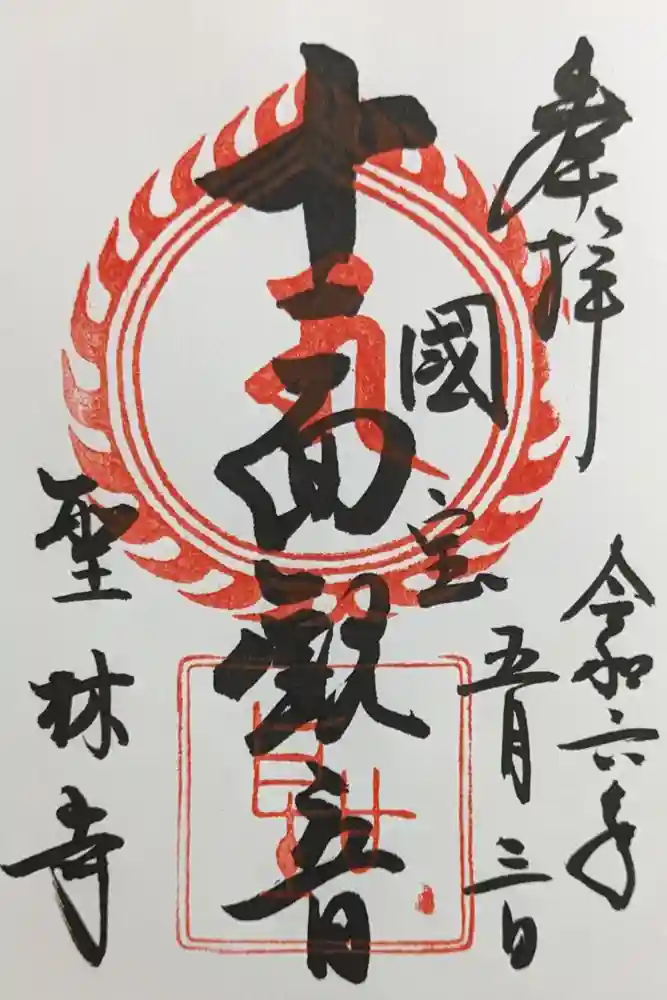 奉拝
令和六年
五月三日
國宝
十一面觀音
聖林寺